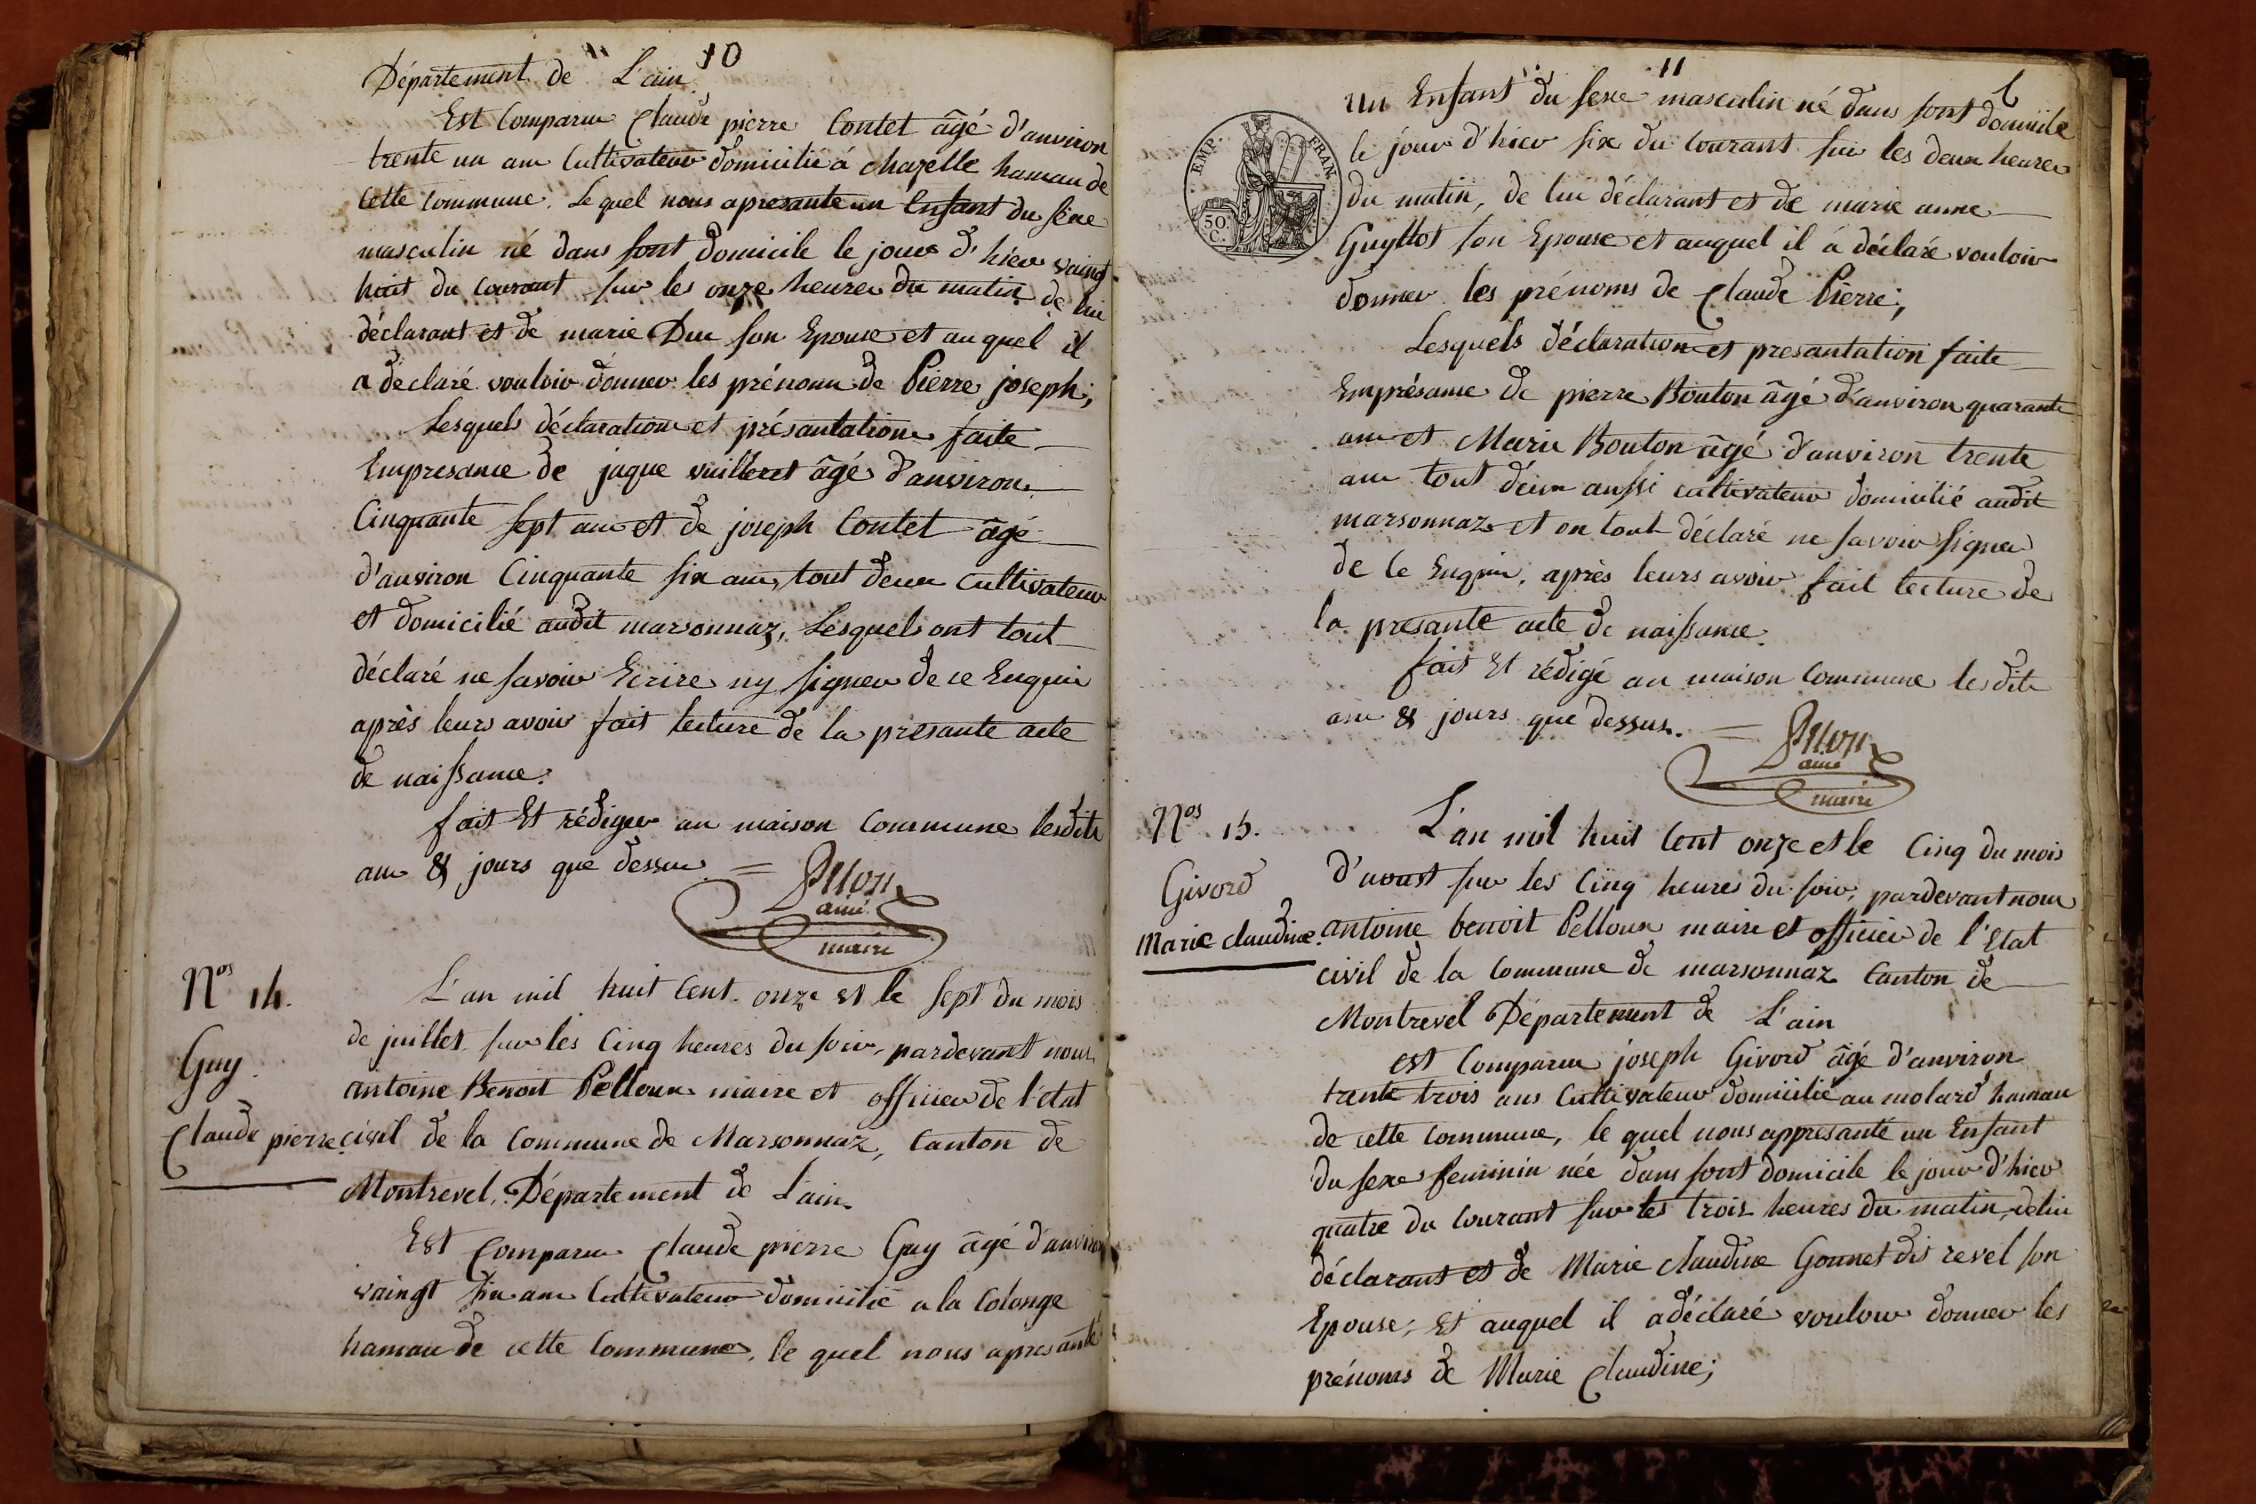 10
Département de L'ain.
Est Comparu Claude pierre Contet âgé d'anviron
trente un ans Cultivateur domicilié á chazelle hamau de
Cette Commune. Le quel nous apresante un Enfant du sexe
masculin né dans sont domicile le jour d'hier vaingt
huit du Courant sur les onze heures du matin de lui
déclarant et de marie Duc son Epouse et au quel il
a declaré vouloir donner les prénoms de Pierre joseph;
Lesquels déclarations et présantations faite
Empresance de jaque vuilleret âgé d'anviron
Cinquante sept ans et de joseph Contet âgé
d'anviron Cinquante six ans, tout deux cultivateur
et domicilié audit marsonnaz, Lesquels ont tout
déclaré ne savoir Ecrire ny signer de ce Enquis
après leurs avoir fait lecture de la presante acte
de naissance.
fait Et rédiger an maison Commune lesdits
ans & jours que dessus =
ainé
maire
Nos 14.
Guy
Claude pierre.
L'an mil huit Cent onze et le sept du mois
de juillet sur les Cinq heures du soir, pardevant nous
antoine Benoit Pelloux maire et officier de l'état
civil de la Commune de Marsonnaz, Canton de
Montrevel, Département de L'ain.
Est Comparu Claude pierre Guy âgé d'anviron
vaingt six ans Cultivateur domicilié a la Colonge
hamau de cette Commune, le quel nous apresanté
11
EMP. FRAN
50
C.
un Enfant du sexe masculin né dans sont domicile
le jour d'hier six du Courant sur les deux heures
du matin, de lui déclarant et de marie anne
Guyllot son Epouse et auquel il á déclaré vouloir
donner les prénoms de Claude Pierre;
Lesquels déclaration et presantation faite
Emprésance de pierre Bouton âgé d'anviron quarante
ans et Marie Bouton âgé d'anviron trente
ans tout deux aussi cultivateur domicilié audit
marsonnaz et on tout déclaré ne savoir signer
de Ce Enquis, après leurs avoir fait lecture de
la presante acte de naissance.
fait Et rédigé an maison Commune lesdits
ans & jours que dessus. =
ainé
maire
Nos 15.
Givord
Marie claudine.
L'an mil huit Cent onze et le Cinq du mois
d'aoust sur les Cinq heures du soir, pardevant nous
antoine benoit Pelloux maire et officier de l'Etat
civil de la Commune de marsonnaz Canton de
Montrevel Département de L'ain
est Comparu joseph Givord âgé d'anviron
trante trois ans Cultivateur domicilié au molard hamau
de cette Commune, le quel nous appresanté un Enfant
du sexe feminin née dans sont domicile le jour d'hier
quatre du Courant sur les trois heures du matin, de lui
déclarant et de Marie claudine Gonnet dit revel son
Epouse; Et auquel il a déclaré vouloir donner les
prénoms de Marie Claudine;